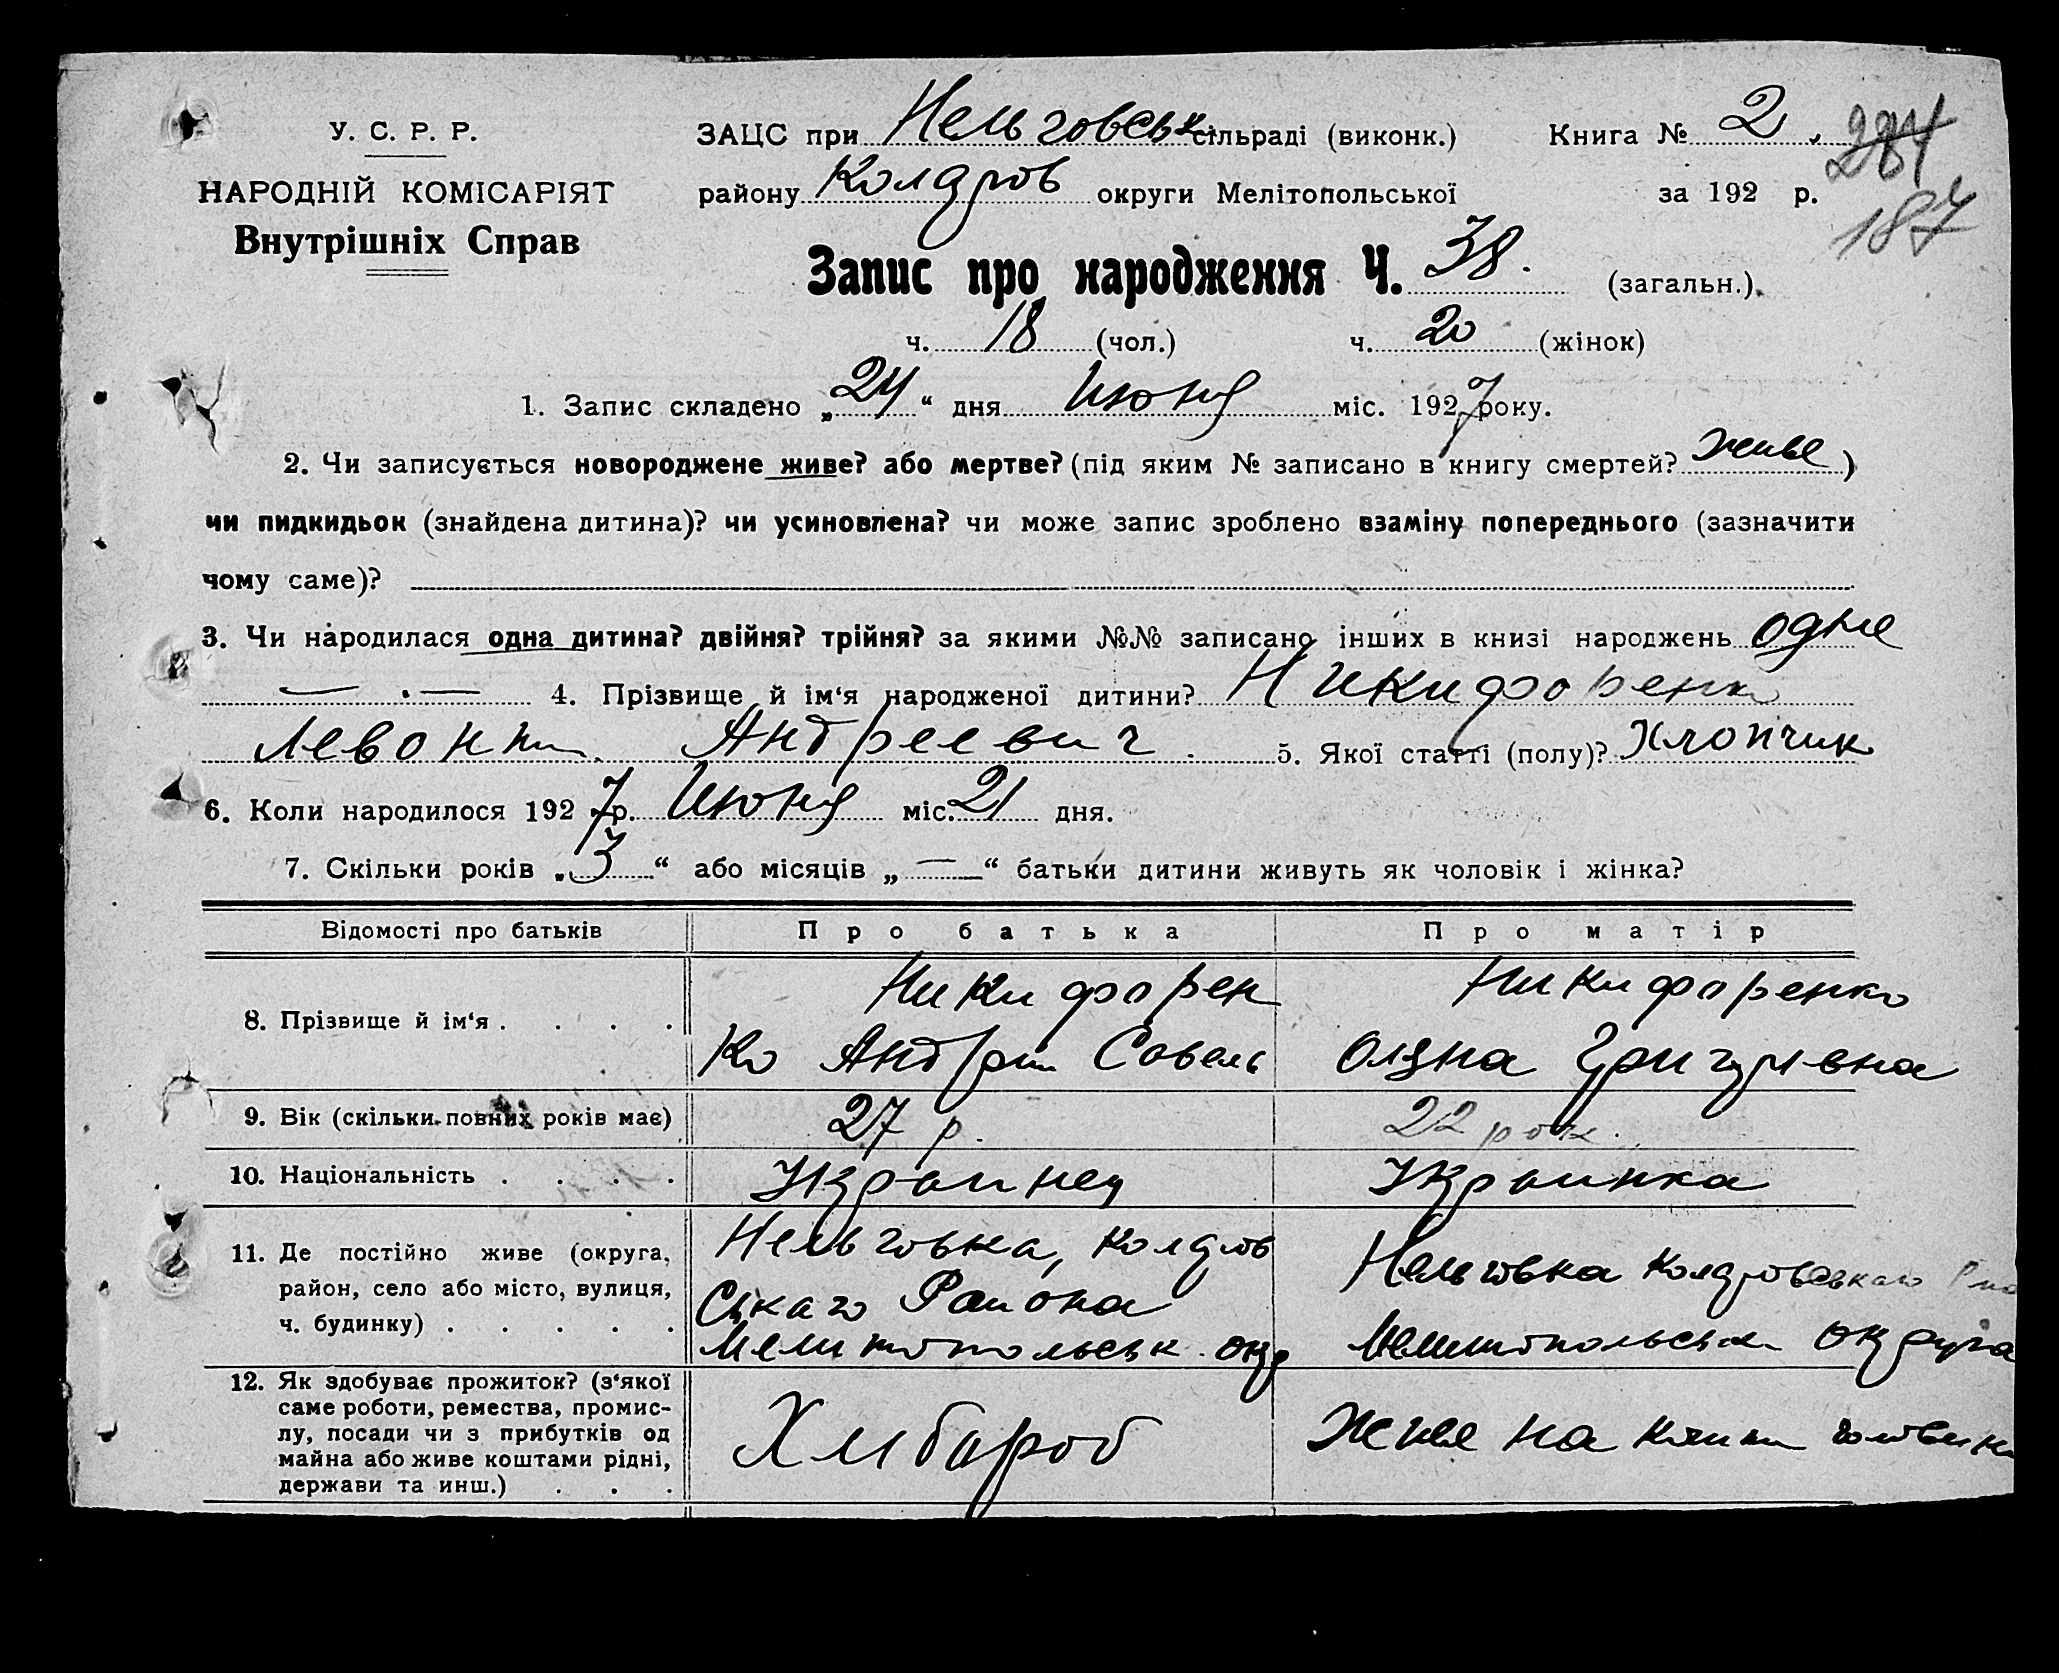 У. С. Р. Р.
НАРОДНІЙ КОМІСАРІЯТ
Внутрішніх Справ
ЗАЦС при Нельговськ сільраді (виконк.) Книга № 2
284
району Колдров округи Мелітопольської за 192 р.
187
Запис про народження Ч. 38. (загальн.)
ч. 18 (чол.) ч. 20 (жінок)
1. Запис складено „24“ дня Июня міс. 1927 року.
2. Чи записується новороджене живе? або мертве? (під яким № записано в книгу смертей? живе)
чи пидкидьок (знайдена дитина)? чи усиновлена? чи може запис зроблено взаміну попереднього (зазначити
чому саме)?
3. Чи народилася одна дитина? двійня? трійня? за якими №№ записано інших в книзі народжень одне
— . — 4. Прізвище й ім‘я народженої дитини? Никифоренко
Левонти Андреевич. 5. Якої статті (полу)? Хлопчик
6. Коли народилося 1927 р. Июня міс. 21 дня.
7. Скільки років „3“ або місяців „—“ батьки дитини живуть як чоловік і жінка?
Відомості про батьків Про батька Про матір
8. Прізвище й ім‘я . . . . Никифорен
ко Андрій Савель
Никифоренко
Григурівна
9. Вік (скільки повних років має) 27 р. 22 рок.
10. Національність . . . . Украинец Украинка
11. Де постійно живе (округа,
район, село або місто, вулиця,
ч. будинку) . . . . .
Нельговка, Колдров
ськаго Раиона
Мелитопольськ. окр
Нельговка Колдровськаго
Мелитопольськ округа
12. Як здобуває прожиток? (з‘якої
саме роботи, ремества, промис-
лу, посади чи з прибутків од
майна або живе коштами рідні,
держави та инш.) . . .
Хлибороб
Живе на